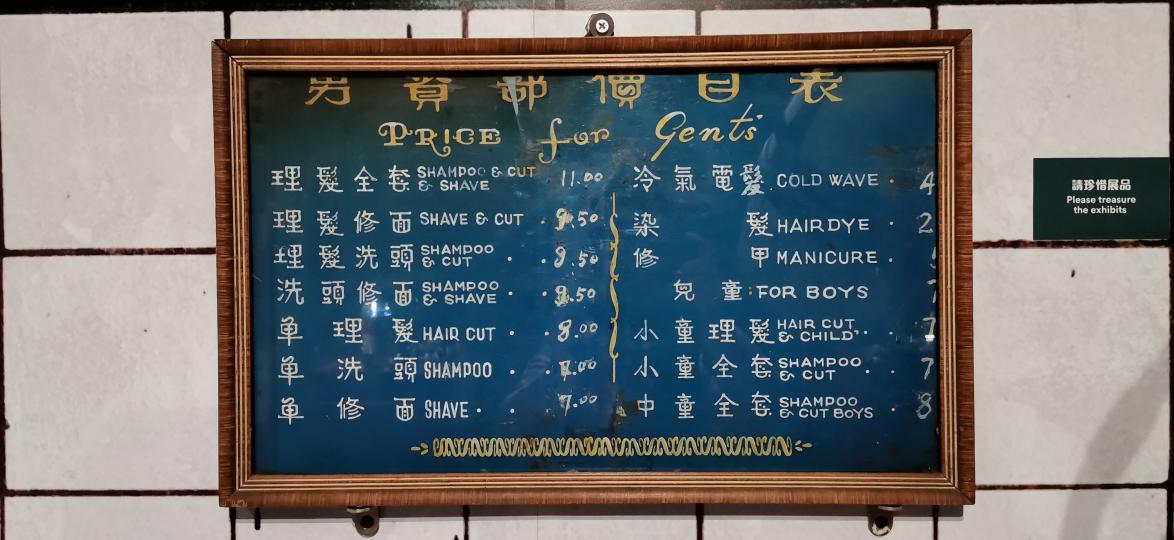 男賓部價目表
PRICE for Gent's
理髮全套 SHAMPOO & CUT & SHAVE 11.00
理髮修面 SHAVE & CUT · 9.50
理髮洗頭 SHAMPOO & CUT · · 9.50
洗頭修面 SHAMPOO & SHAVE · · 9.50
單理髮 HAIR CUT · · 8.00
單洗頭 SHAMPOO · · 7.00
單修面 SHAVE · · 7.00
冷氣電髮 COLD WAVE · 4
染髮 HAIR DYE · 2
修甲 MANICURE ·
兒童 FOR BOYS
小童理髮 HAIR CUT & CHILD' · · 7
小童全套 SHAMPOO & CUT · · 7
中童全套 SHAMPOO & CUT BOYS · 8
請珍惜展品
Please treasure
the exhibits